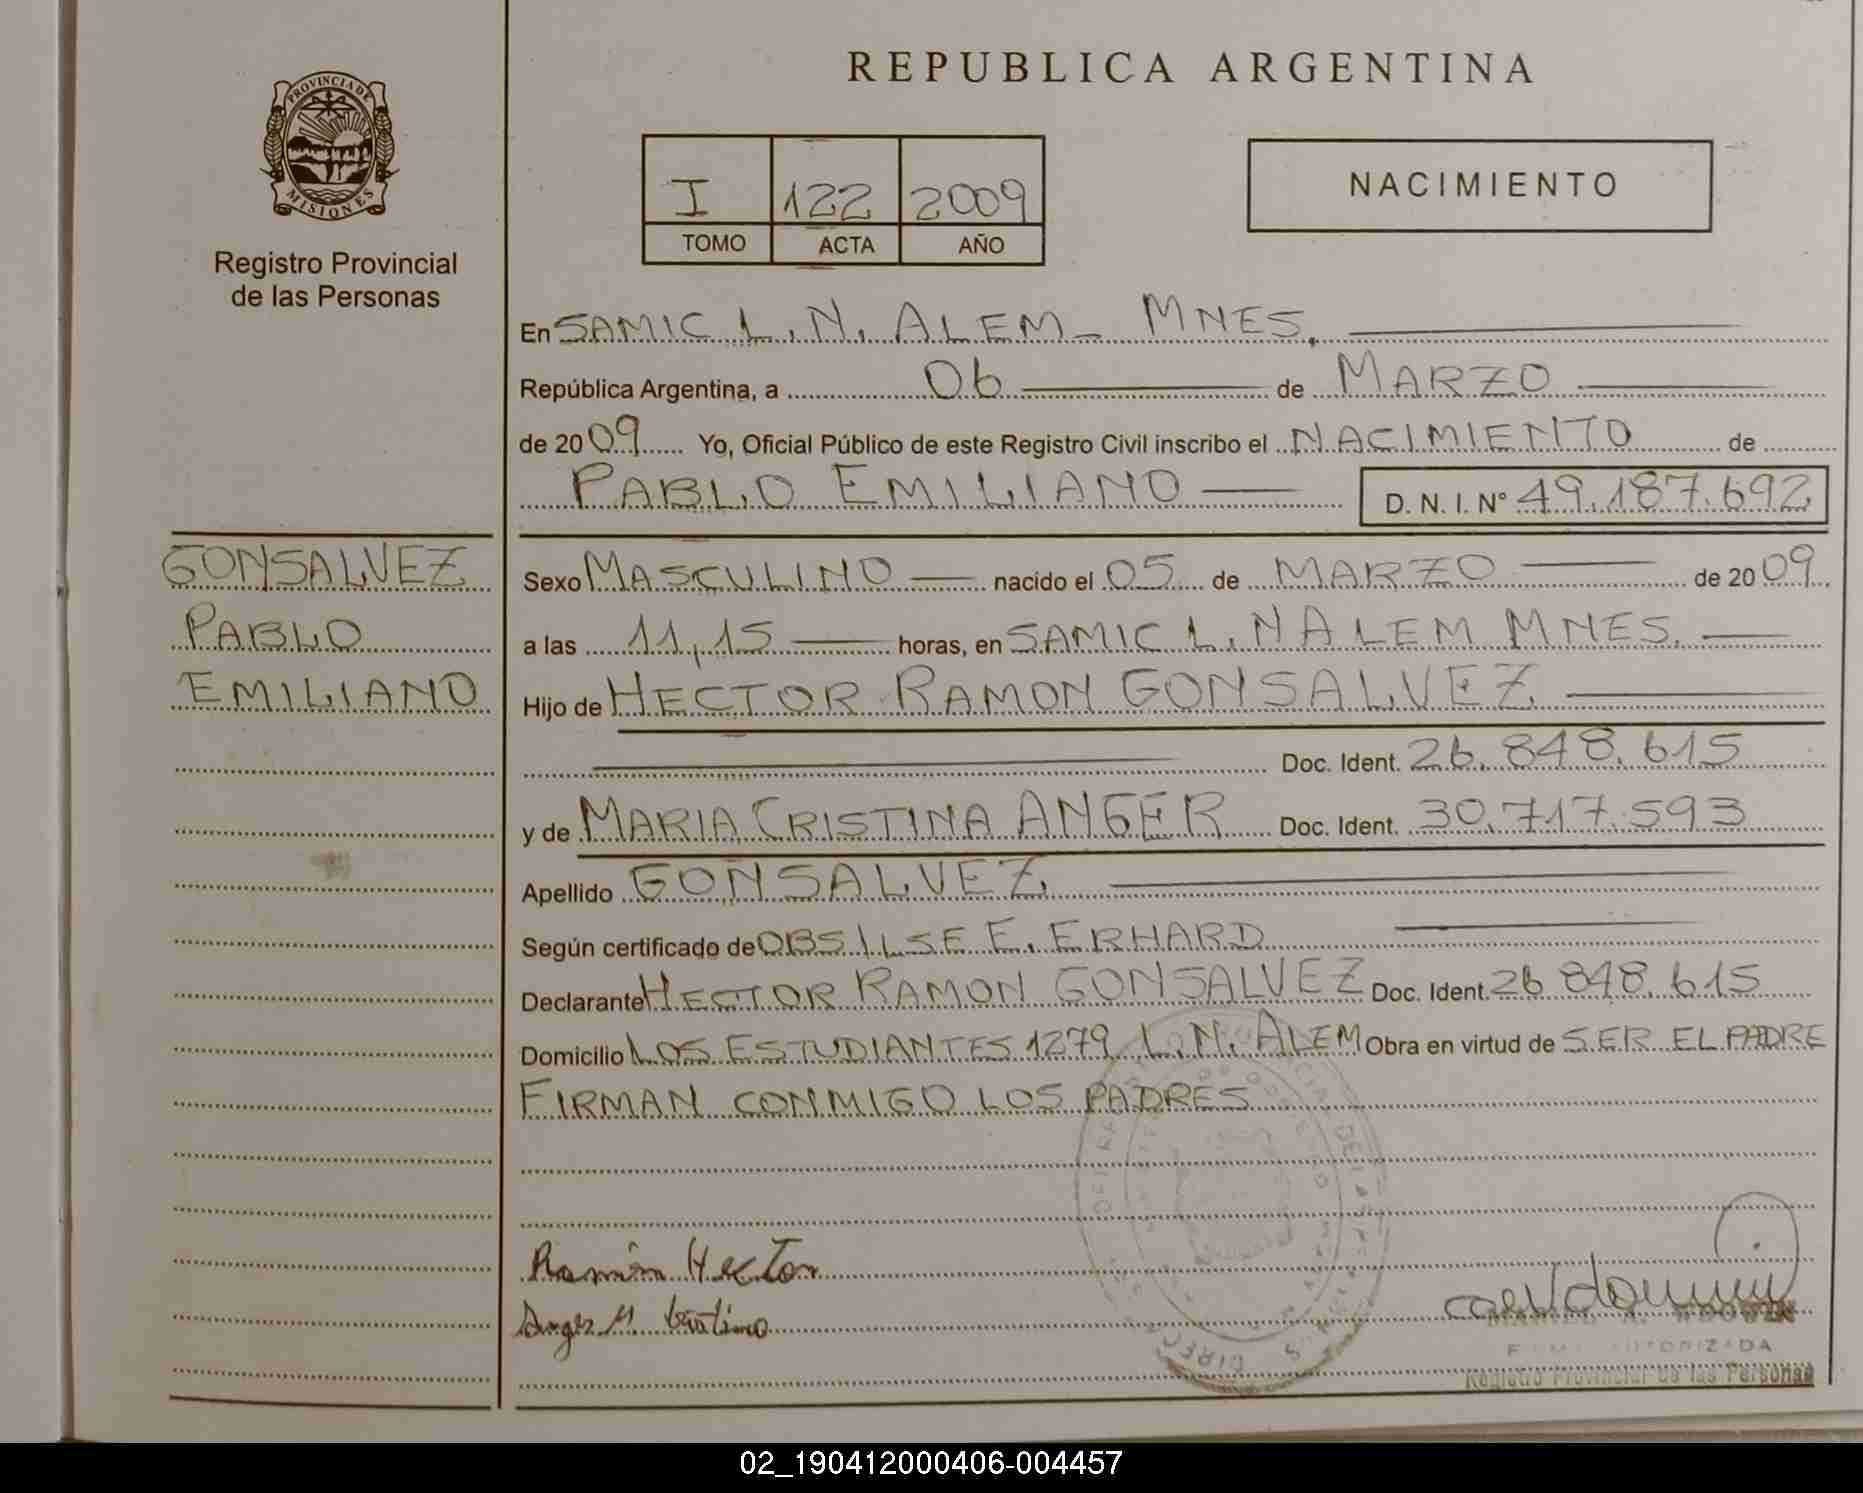 REPUBLICA ARGENTINA
PROVINCIA DE
MISIONES
Registro Provincial
de las Personas
I 122 2009
TOMO ACTA AÑO
NACIMIENTO
En SAMIC L.N. ALEM - MNES.
República Argentina, a 06 de MARZO
de 2009 Yo, Oficial Público de este Registro Civil inscribo el NACIMIENTO de
PABLO EMILIANO D. N. I. N° 49.187.692
GONSALVEZ
PABLO
EMILIANO
Sexo MASCULINO nacido el 05 de MARZO de 2009
a las 11,15 horas, en SAMIC L.N ALEM MNES.
Hijo de HECTOR RAMON GONSALVEZ
Doc. Ident. 26.848.615
y de MARIA CRISTINA ANGER Doc. Ident. 30.717.593
Apellido GONSALVEZ
Según certificado de OBS ILSE E. ERHARD
Declarante HECTOR RAMON GONSALVEZ Doc. Ident. 26 848.615
Domicilio LOS ESTUDIANTES 1279 L.N. ALEM Obra en virtud de SER EL PADRE
FIRMAN CONMIGO LOS PADRES
Ramón Hector
Anger M. Cristina
Registro Provincial de las Personas
02_190412000406-004457